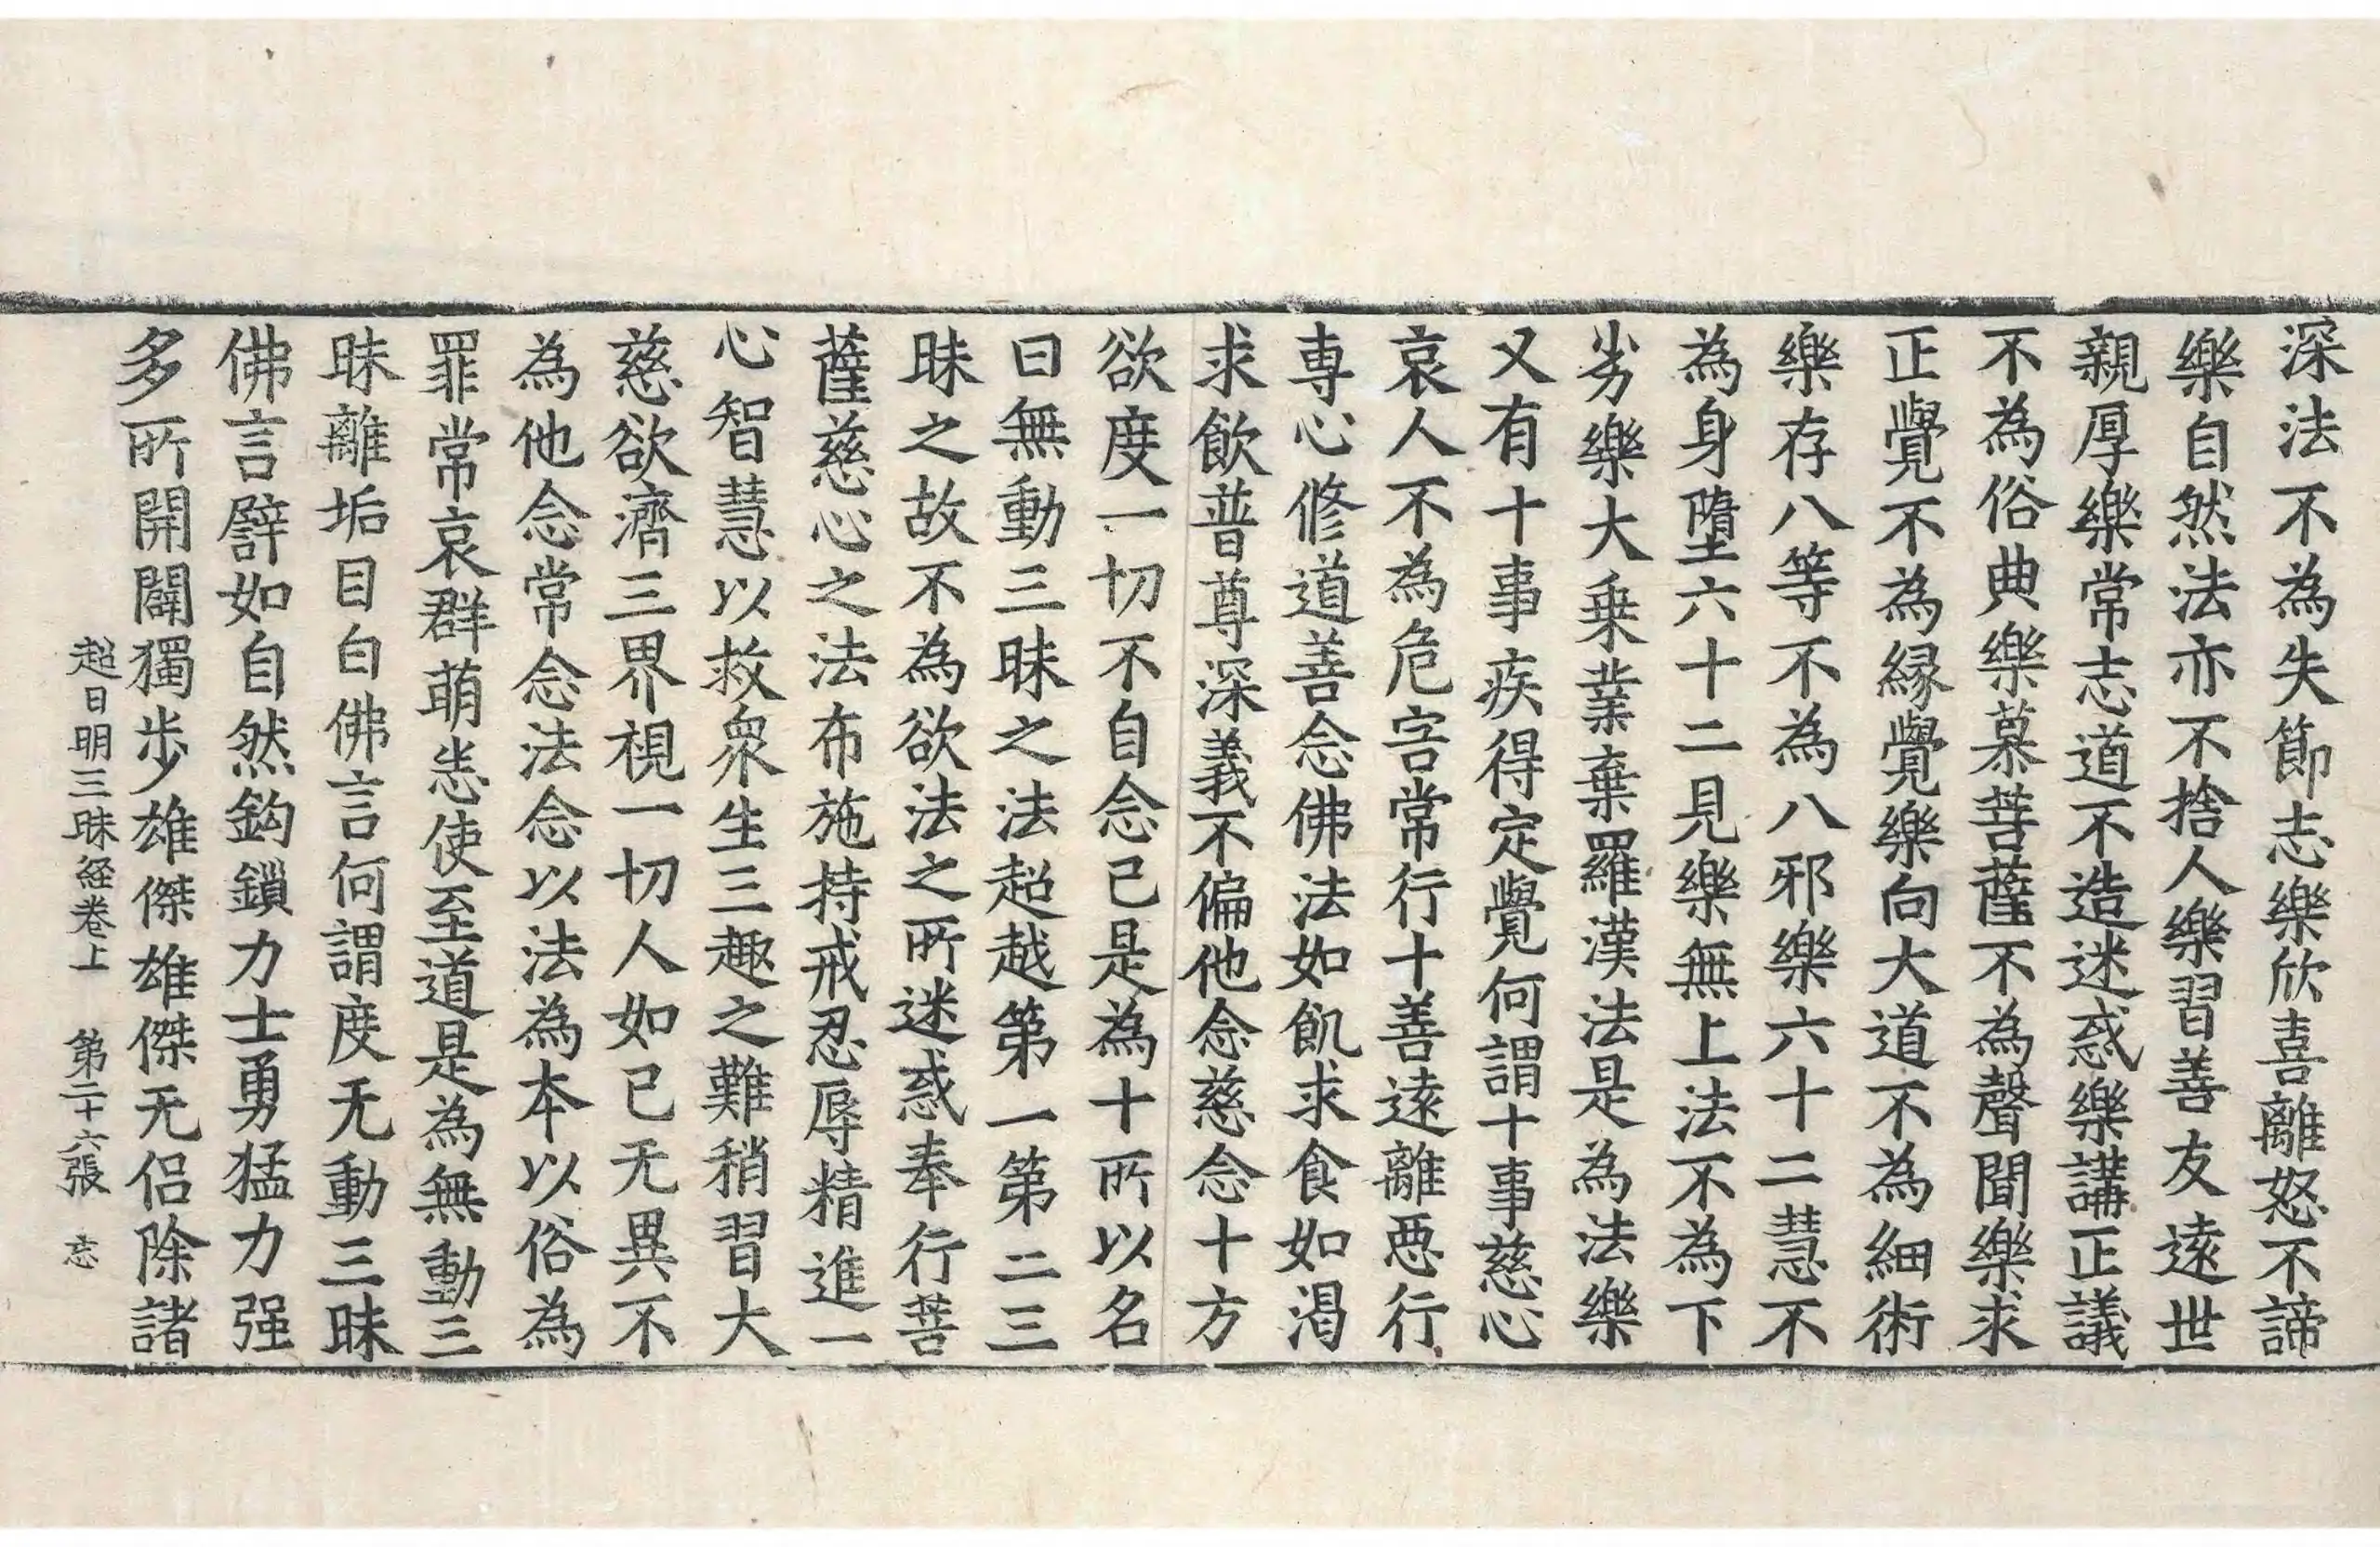 深法不為失節志樂欣喜離怒不諦
樂自然法亦不捨人樂習善友遠世
親厚樂常志道不造迷惑樂講正議
不為俗典樂慕菩薩不為聲聞樂求
正覺不為縁覺樂向大道不為細術
樂存八等不為八邪樂六十二慧不
為身墮六十二見樂無上法不為下
劣樂大乗業棄羅漢法是為法樂
又有十事疾得定覺何謂十事慈心
哀人不為危害常行十善遠離惡行
専心修道善念佛法如飢求食如渴
求飲普尊深義不偏他念慈念十方
欲度一切不自念己是為十所以名
曰無動三昧之法超越第一第二三
昧之故不為欲法之所迷惑奉行菩
薩慈心之法布施持戒忍辱精進一
心智慧以救衆生三趣之難稍習大
慈欲濟三界視一切人如己无異不
為他念常念法念以法為本以俗為
罪常哀群萌恙使至道是為無動三
昧離垢目白佛言何謂度无動三昧
佛言譬如自然鈎鎖力士勇猛力强
多所開闢獨步雄傑雄傑无侣除諸
超日明三昧経卷上 第二十六張 忘